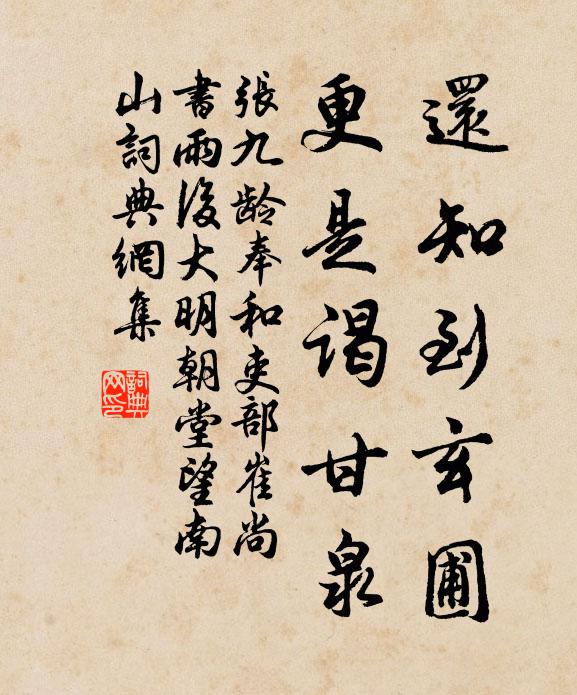 還知到玄圃
更是謁甘泉
張九齡奉和吏部崔尚
書雨後大明朝堂望南
山詞典網集
詞典
网印